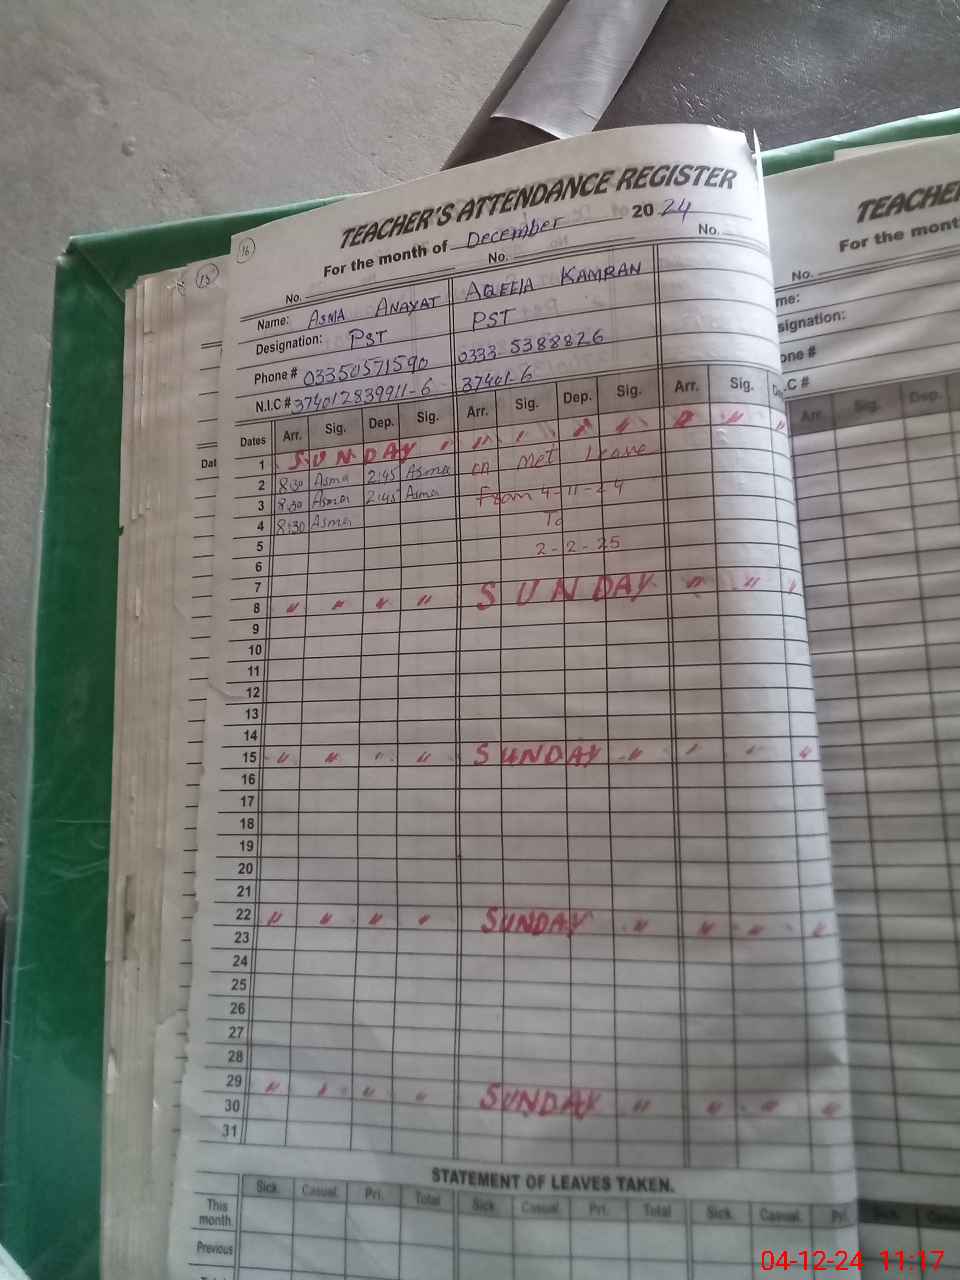 16
15
TEACHER'S ATTENDANCE REGISTER
For the month of December 2024
No. No. No.
Name: ASMA ANAYAT AQEELA KAMRAN
Designation: PST PST
Phone # 03350571590 0333-5388826
N.I.C # 374012839911-6 37401-6
Dates Arr. Sig. Dep. Sig. Arr. Sig. Dep. Sig. Arr. Sig. De
1 SUNDAY " " " " " " " "
2 8:30 Asma 2:45 Asma on Met Leave
3 8:30 Asma 2:45 Asma From 4-11-24
4 8:30 Asma To
5 2-2-25
6
7
8 " " " " SUNDAY " " "
9
10
11
12
13
14
15 " " " " SUNDAY " " " "
16
17
18
19
20
21
22 " " " " SUNDAY " " " "
23
24
25
26
27
28
29 " " " " SUNDAY " " " "
30
31
STATEMENT OF LEAVES TAKEN.
Sick. Casual. Pri. Total Sick. Casual. Pri. Total Sick. Casual. Pri.
This month.
Previous
TEACHER
For the mont
No.
me:
signation:
one #
.C #
Arr. Sig. Dep.
Dat
04-12-24 11:17